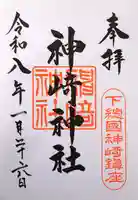 奉拝
下總國神崎鎮座
神崎神社
令和八年一月二十六日